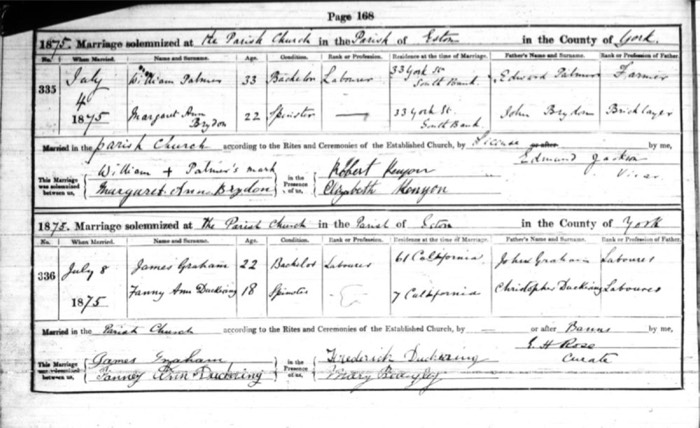 Page 168
1875. Marriage solemnized at the Parish Church in the Parish of Eston in the County of York.
No. When Married. Name and Surname. Age. Condition. Rank or Profession. Residence at the time of Marriage. Father's Name and Surname. Rank or Profession of Father.
335 July 4 1875
William Palmer 33 Bachelor Labourer 33 York St. South Bank Edward Palmer Farmer
Margaret Ann Brydon 22 Spinster — 33 York St. South Bank John Brydon Bricklayer
Married in the parish Church according to the Rites and Ceremonies of the Established Church, by Licence or after by me,
Edmund Jackson
Vicar
This Marriage was solemnized between us,
William + Palmer's mark
Margaret Ann Brydon
in the Presence of us,
Robert Kenyon
Elizabeth Kenyon
1875. Marriage solemnized at the Parish Church in the Parish of Eston in the County of York
No. When Married. Name and Surname. Age. Condition. Rank or Profession. Residence at the time of Marriage. Father's Name and Surname. Rank or Profession of Father.
336 July 8 1875
James Graham 22 Bachelor Labourer 61 California John Graham Labourer
Fanny Ann Duckring 18 Spinster 7 California Christopher Duckring Labourer
Married in the Parish Church according to the Rites and Ceremonies of the Established Church, by — or after Banns by me,
E. H. Rose
Curate
This Marriage was solemnized between us,
James Graham
Fanney Ann Duckring
in the Presence of us,
Frederick Duckring
Mary